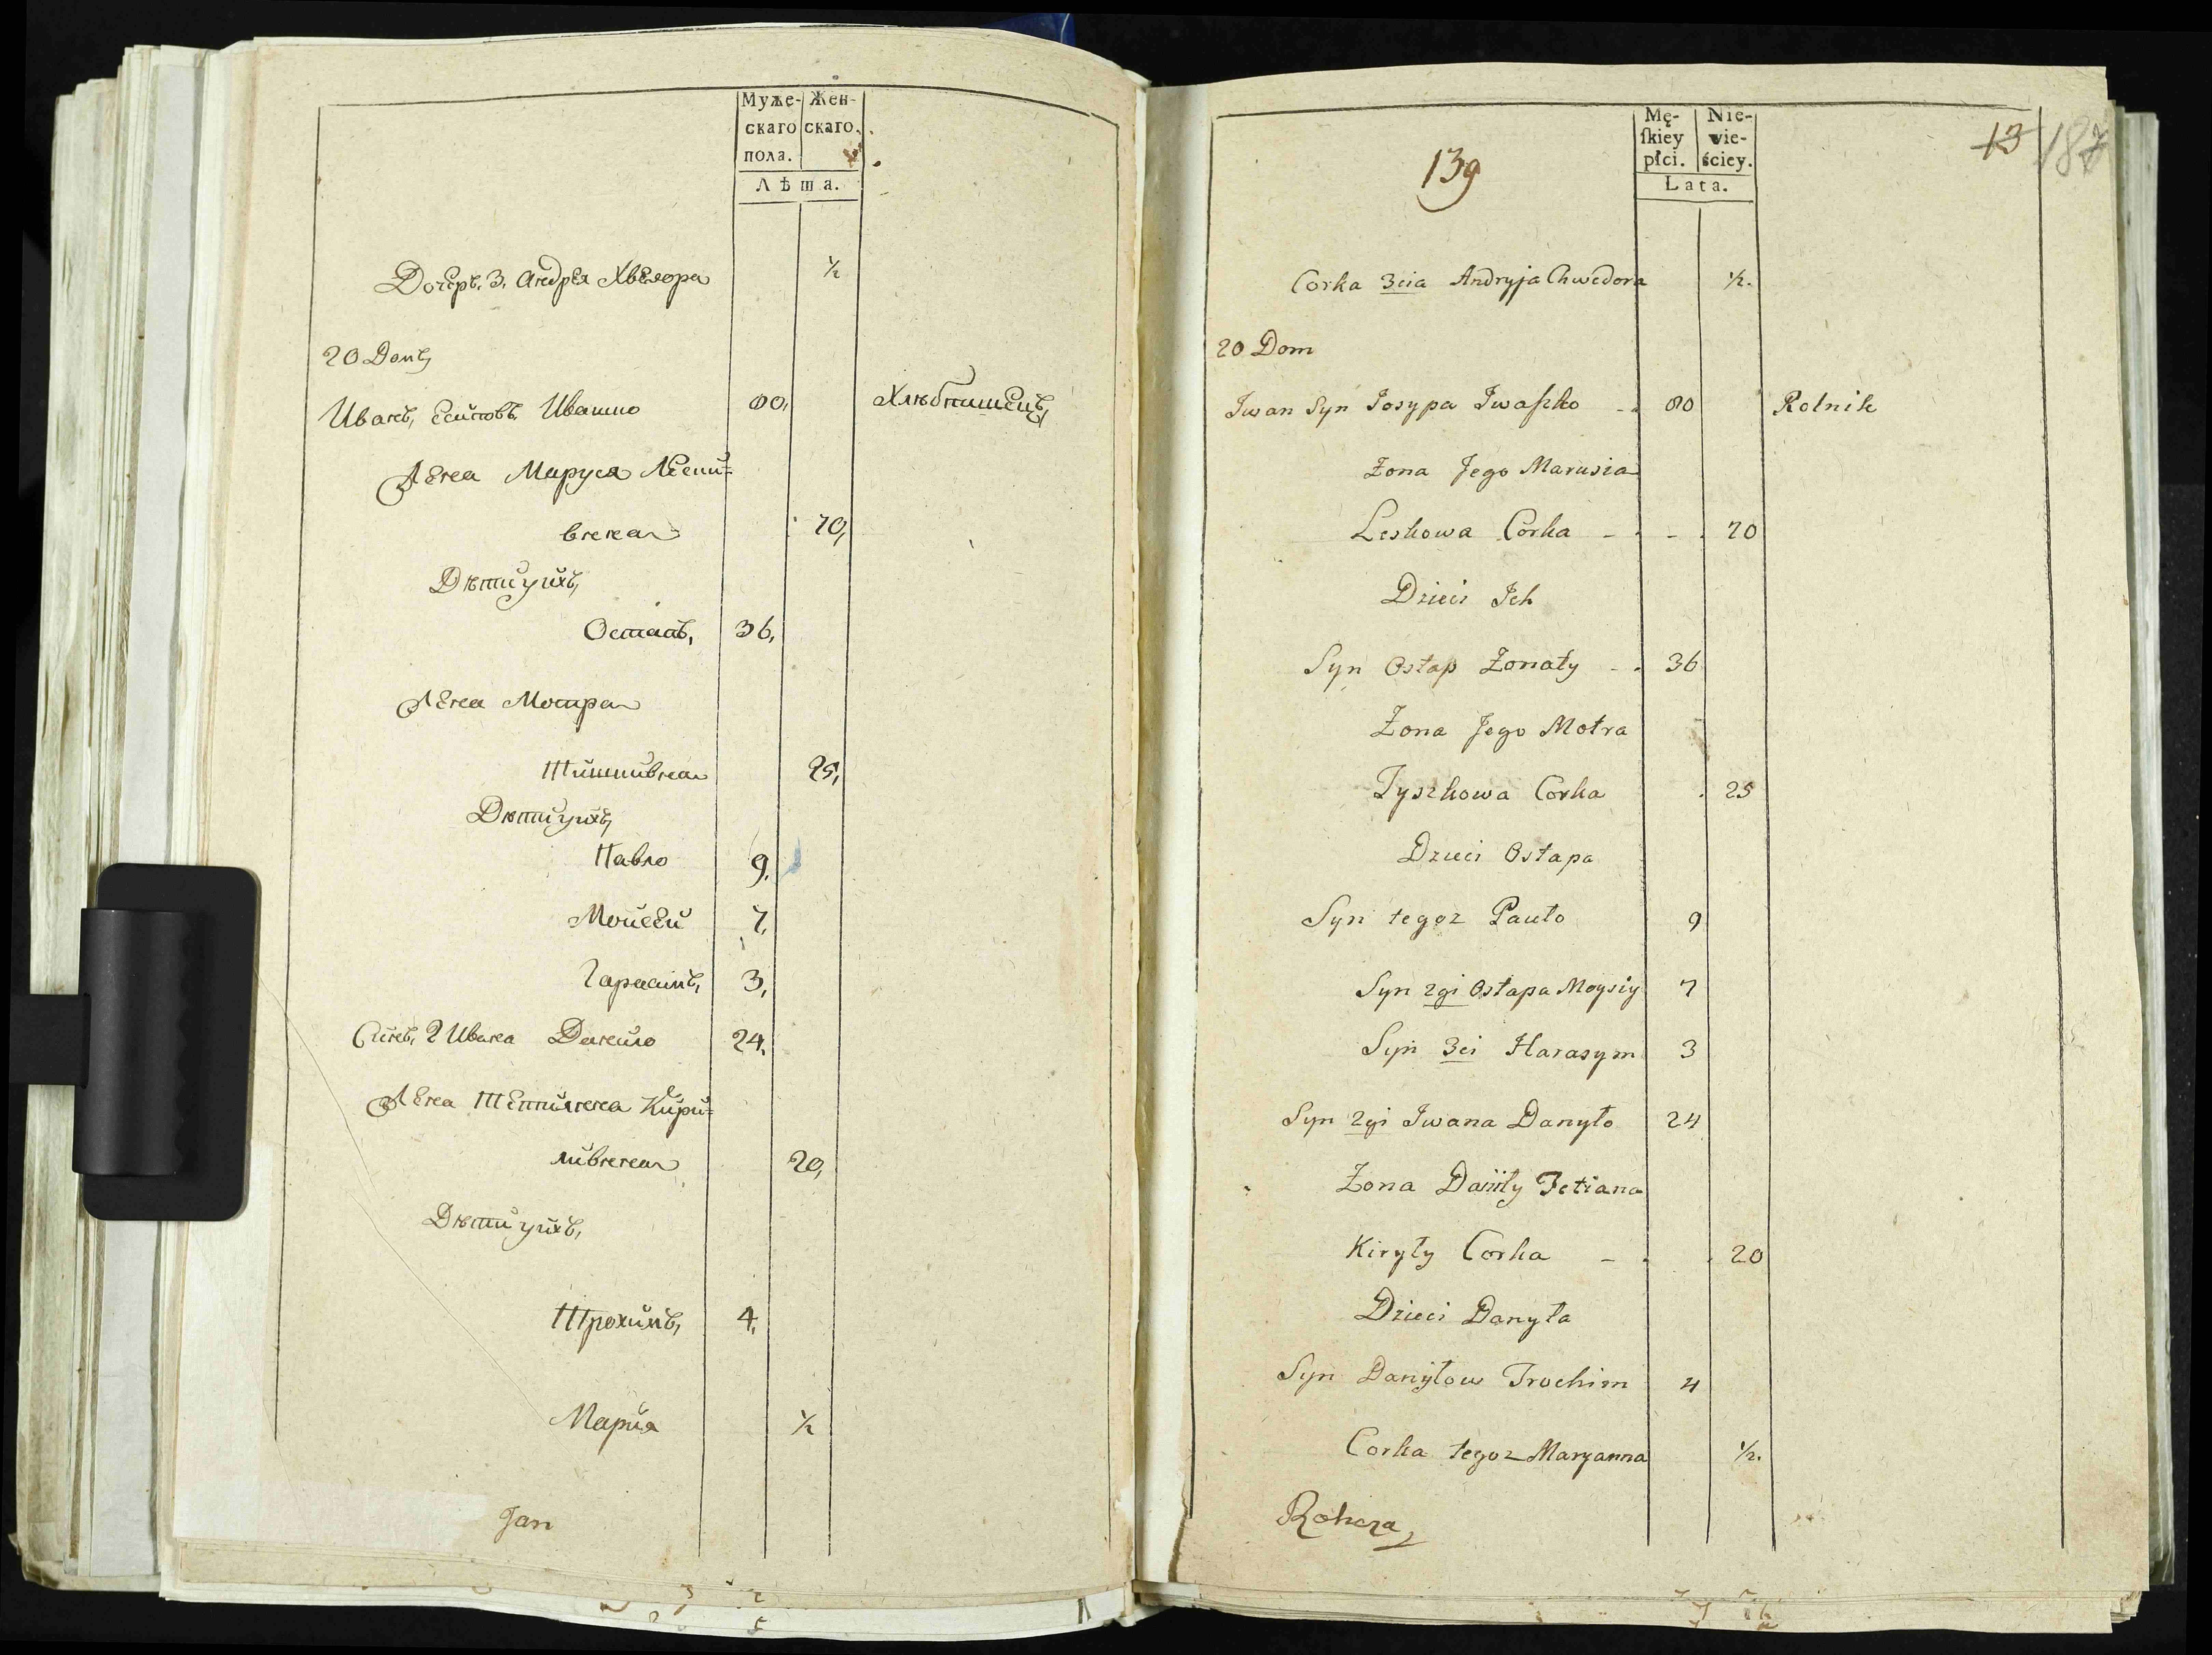 Муже- Жен-
скаго скаго.
пола.
Лѣта.
Дочерь 3. Андрея Хведора ½
20 Домъ
Иванъ, Есиповъ Ивашко 80, Хлѣбпашецъ,
Жена Маруся Леськи-
вна 70,
Дѣти ихъ,
Остапъ, 36,
Жена Мотра
Тишкивна 25,
Дѣти ихъ,
Павло 9,
Мойсей 7,
Гарасимъ, 3,
Сынъ, 2 Ивана Данило 24,
Жена Тетияна Кири-
ливна 20,
Дѣти ихъ,
Трохимъ, 4,
Мария ½
Jan
Mę- Nie-
skiey wie-
płci. ściey.
Lata.
139
13 187
Corka 3cia Andryja Chwedora ½.
20 Dom
Iwan Syn Josypa Iwaszko - 80 Rolnik
Zona Jego Marusia
Leskowa Corka - - 70
Dzieci Ich
Syn Ostap Zonaty - 36
Zona Jego Motra
Tyszkowa Corka 25
Dzieci Ostapa
Syn tegoz Pauło 9
Syn 2gi Ostapa Moysiy 7
Syn 3ci Harasym 3
Syn 2gi Iwana Danyło 24
Zona Daniły Tetiana
Kiryły Corka - 20
Dzieci Danyła
Syn Danyłow Trochim 4
Corka tegoz Maryanna ½.
Rohoza